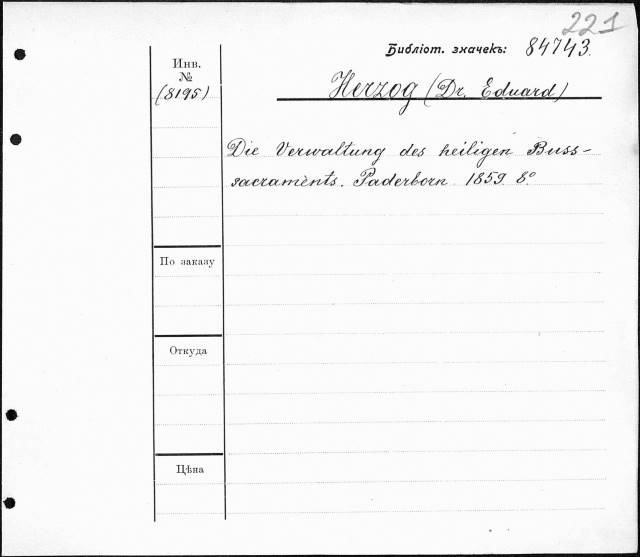 221
Библіот. значекъ: 84743.
Инв.
№
(8195)
Herzog (Dr. Eduard)
Die Verwaltung des heiligen Buss-
sacraments. Paderborn 1859. 8°
По заказу
Откуда
Цѣна